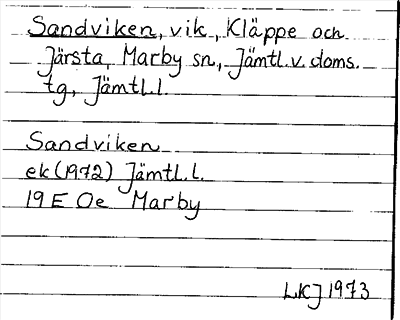 Sandviken, vik, Kläppe och
Järsta, Marby sn, Jämtl.v.doms.
tg, Jämtl.l.
Sandviken
ek(1972) Jämtl.l.
19 E Oe Marby
LKJ 1973